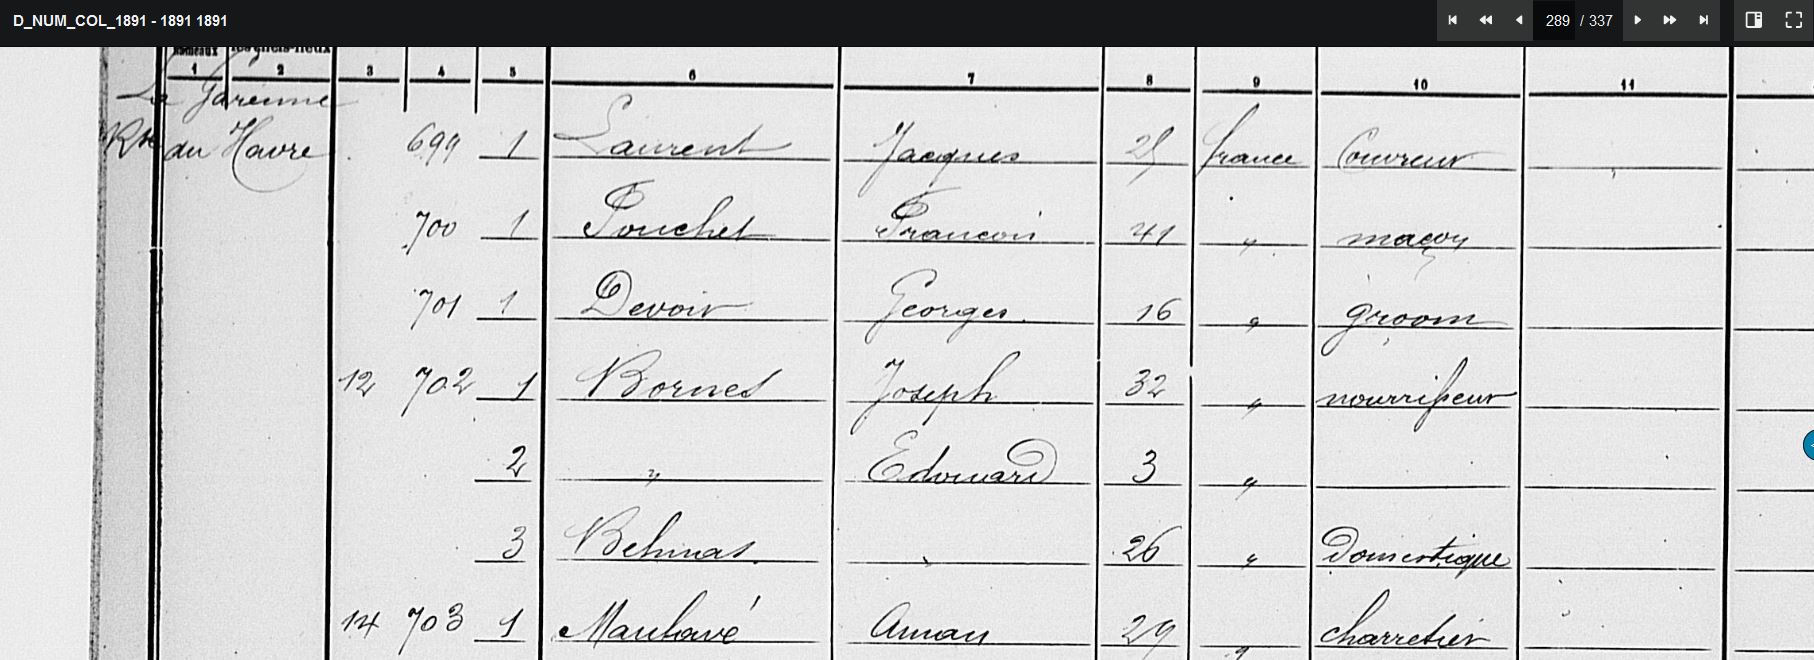 D_NUM_COL_1891 - 1891 1891
289 / 337
1 2 3 4 5 6 7 8 9 10 11
La Garenne
Rte du Havre 699 1 Laurent Jacques 25 france Couvreur
700 1 Pouchet Francois 41 " maçon
701 1 Devoir Georges 16 " groom
12 702 1 Bornet Joseph 32 " nourrisseur
2 " Edouard 3 "
3 Behnas 26 " Domestique
14 703 1 Aman 29 " charretier